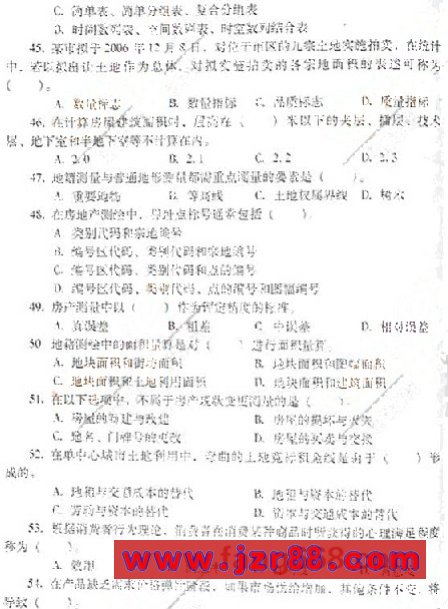 C. 简单表、简单分组表、复合分组表
D. 时间数列表、空间数列表、时空数列结合表
45. 某市拟于2006年12月8日，对位于市区的九宗土地实施拍卖，在统计
中，若以拟出让土地作为总体，对拟实施拍卖的各宗地面积的表述可称为
（ ）。
A. 数量标志 B. 数量指标 C. 品质标志 D. 质量指标
46. 在计算房屋建筑面积时，层高在（ ）米以下的夹层、插层、技术
层、地下室和半地下室等不计算在内。
A. 2.0 B. 2.1 C. 2.2 D. 2.3
47. 地籍测量与普通地形测量都需重点测量的要素是（ ）。
A. 重要地物 B. 等高线 C. 土地权属界线 D. 
48. 在房地产测绘中，界址点标号通常包括（ ）。
A. 类别代码和宗地编号
B. 编号区代码、类别代码和宗地编号
C. 编号区代码、类别代码和点的编号
D. 编号区代码、类别代码、点的编号和图幅编号
49. 房产测量中以（ ）作为评定精度的标准。
A. 真误差 B. 粗差 C. 中误差 D. 相对误差
50. 地籍测绘中的面积量算是对（ ）进行面积量算。
A. 地块面积和街坊面积 B. 地块面积和图幅面积
C. 地块面积和土地利用面积 D. 地块面积和建筑面积
51. 在以下选项中，不属于房产现状变更测量的是（ ）。
A. 房屋的新建与改建 B. 房屋的损坏与灭失
C. 地名、门牌号的更改 D. 房屋的买卖与交换
52. 在单中心城市土地利用中，弯曲的土地竞标租金线是由于（ ）形
成的。
A. 地租与交通成本的替代 B. 地租与资本的替代
C. 劳动与资本的替代 D. 资本与交通成本的替代
53. 根据消费者行为理论，消费者在消费某种商品时所获得的心理满足程度
称为（ ）。
A. 效用
www.fjzr88.com
54. 在产品缺乏需求价格弹性阶段，如果市场供给增加，其他条件不变，将
导致（ ）。